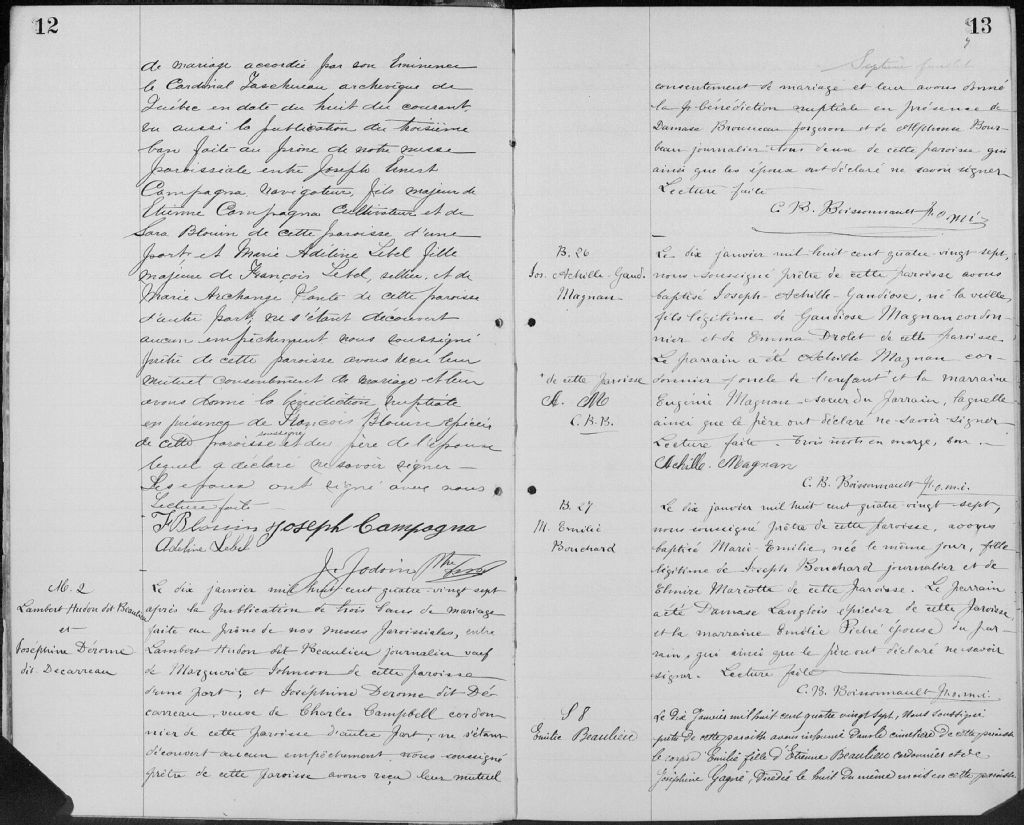 12
de mariage accordée par son Eminence
le Cardinal Taschereau archevêque de
Québec en date du huit du courant
vu aussi la publication du troisième
ban faite au prône de notre messe
paroissiale entre Joseph Ernest
Campagna navigateur, fils majeur de
Etienne Campagna cultivateur et de
Sara Blouin de cette paroisse d'une
part, et Marie Adéline Lebel fille
majeure de François Lebel, sellier, et de
Marie Archange de cette paroisse
d'autre part; ne s'étant découvert
aucun empêchement nous soussigné
prêtre de cette paroisse avons reçu leur
mutuel consentement de mariage et leur
avons donné la bénédiction nuptiale
en présence de François Blouin épicier
soussigné
de cette paroisse et du père de l'épouse
lequel a déclaré ne savoir signer
Les époux ont signé avec nous
Lecture faite
F Blouin Joseph Campagna
Adeline Lebel
J. Jodoin Ptre
M. 2
Lambert Hudon dit Beaulieu
et
Joséphine Dérome
dit Decarreau
Le dix janvier mil huit cent quatre-vingt sept
après la publication de trois bans de mariage
faite au prône de nos messes paroissiales, entre
Lambert Hudon dit Beaulieu journalier veuf
de Marguerite Johnson de cette paroisse
d'une part; et Joséphine Derome dit Dé
carreau, veuve de Charles Campbell cordon-
nier de cette paroisse d'autre part; ne s'étant
découvert aucun empêchement, nous soussigné
prêtre de cette paroisse avons reçu leur mutuel
13
Septième feuillet
consentement de mariage et leur avons donné
la bénédiction nuptiale en présence de
Damase Brousseau forgeron et de Alphonse Bour-
beau journalier tous deux de cette paroisse qui
ainsi que les époux ont déclaré ne savoir signer
Lecture faite
C. B. Boissonnault p.o.m.i.
B. 26
Jos. Achille-Gaud.
Magnan
Le dix janvier mil huit cent quatre-vingt-sept,
nous soussigné prêtre de cette paroisse avons
baptisé Joseph-Achille-Gaudiose, né la veille,
fils légitime de Gaudiose Magnan cordon-
nier et de Emma Drolet de cette paroisse
Le parrain a été Achille Magnan cor-
donnier, oncle de l'enfant + et la marraine
+ de cette paroisse
A. M
C. B. B.
Eugénie Magnan soeur du parrain, laquelle
ainsi que le père ont déclaré ne savoir signer
Lecture faite. trois mots en marge, bon.
Achille Magnan
C. B. Boissonnault p.o.m.i.
B. 27
M. Emilie
Bouchard
Le dix janvier mil huit cent quatre vingt-sept,
nous soussigné prêtre de cette paroisse, avons
baptisé Marie-Emilie, née le même jour, fille
légitime de Joseph Bouchard journalier et de
Elmire Marcotte de cette paroisse. Le parrain
a été Damase Langlois épicier de cette paroisse
et la marraine Emélie Piché épouse du par-
rain, qui ainsi que le père ont déclaré ne savoir
signer. Lecture faite
C. B. Boissonnault p.o.m.i.
S 8
Emilie Beaulieu
Le dix Janvier mil huit cent quatre vingt sept, Nous soussigné
prêtre de cette paroisse avons inhumé dans le cimetière de cette paroisse
le corps d'Emilie fille d'Etienne Beaulieu cordonnier et de
Joséphine Gagné, décédée le huit du même mois en cette paroisse